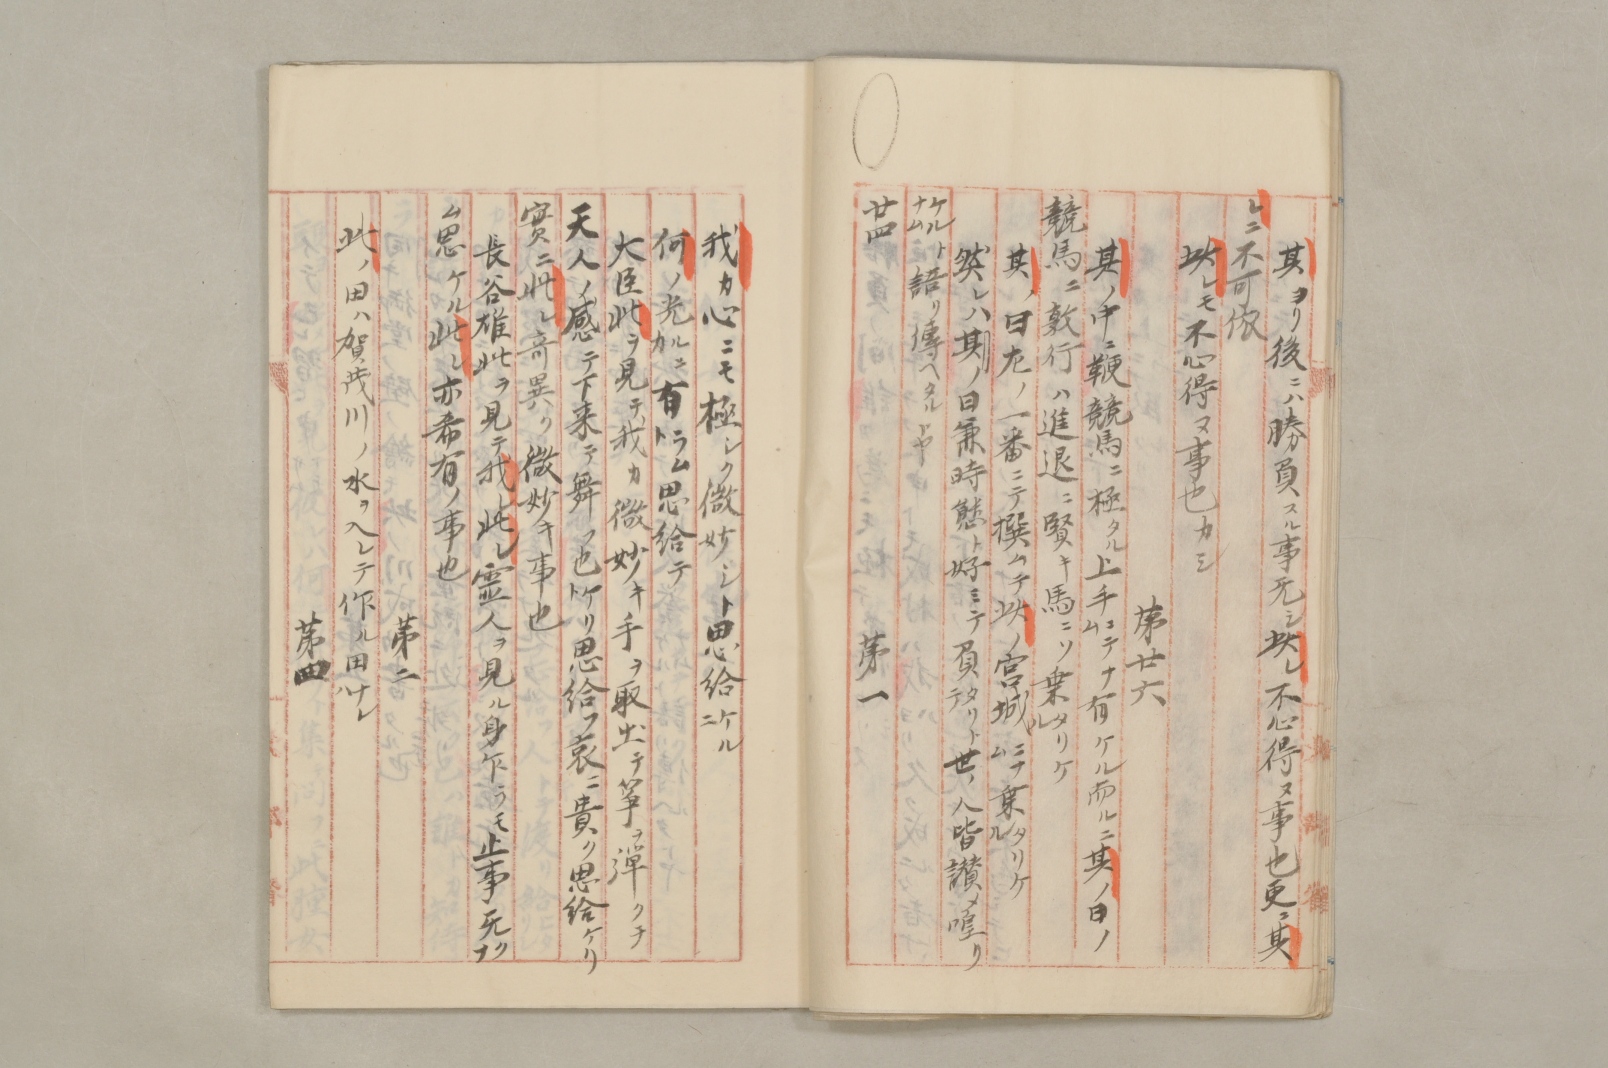 其ヨリ後ニハ勝負スル事无シ此レ不心得ヌ事也更ニ其
レニ不可依
此レモ不心得ヌ事也カシ
第廿六
其ノ中ニ鞭競馬ニ極タル上手ニテナム有ケル而ルニ其ノ日ノ
競馬ニ敦行ハ進退ニ賢キ馬ニソ乗タリケル
其ノ日左ノ一番ニテ撰ムテ此ノ宮城ニナム乗タリケル
然レハ期ノ日兼時態ト好ミテ負タリトテ世ノ人皆讃メ喤リ
ケルトナム語リ傳ヘタルトヤ
廿四
第一
我カ心ニモ極シク微妙シト思給ケルニ
何ノ光カルニ有ラムト思給テ
大臣此ヲ見テ我カ微妙キ手ヲ取出テ箏ヲ弾クナ
天人ノ感テ下来テ舞フ也ケリト思給フ哀ニ貴ク思給ケリ
實ニ此レ奇異ク微妙キ事也
長谷雄此ヲ見テ我レ此レ霊人ヲ見ル身乍ラモ止事无クナ
ム思ケル此レ亦希有ノ事也
第二
此ノ田ハ賀茂川ノ水ヲ入レテ作ル田ナレハ
第四